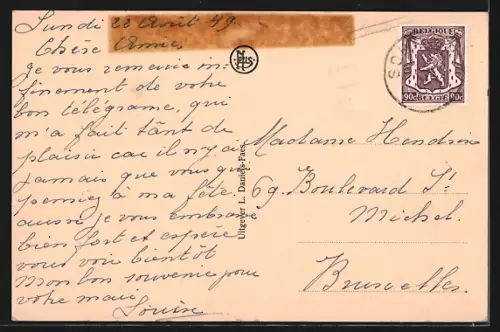 Lundi 22 Août 49.
Chère Anna,
Je vous remercie in-
finement de votre
bon télégrame, qui
m'a fait tânt de
plaisir car il n'y a
jamais que vous qui
pensiez à ma fête.
aussi je vous embrasse
bien fort et espère
vous voir bientôt
Mon bon souvenir pour
votre mari
Louise
Uitgever L. Daniels-Faes
BELGIQUE
90c BELGIE 90c
Madame Hendrix
69. Boulevard St
Michel.
Bruxelles.